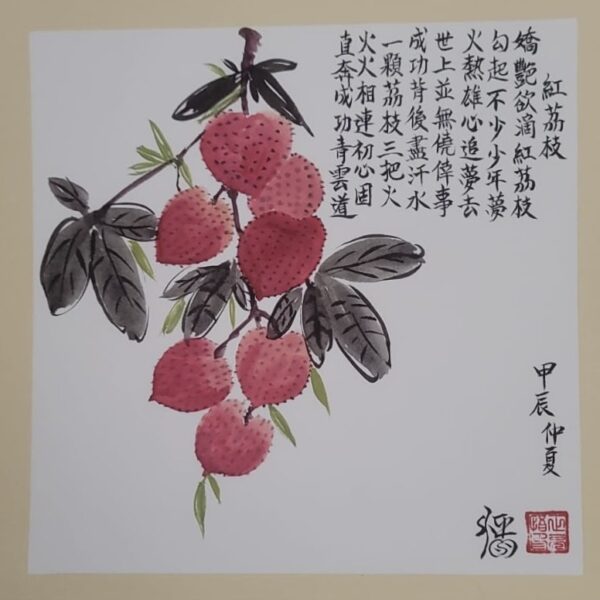 紅荔枝
嬌艷欲滴紅荔枝
勾起不少少年夢
火熱雄心追夢去
世上並無僥倖事
成功背後盡汗水
一顆荔枝三把火
火火相連初心固
直奔成功青雲道
甲辰仲夏